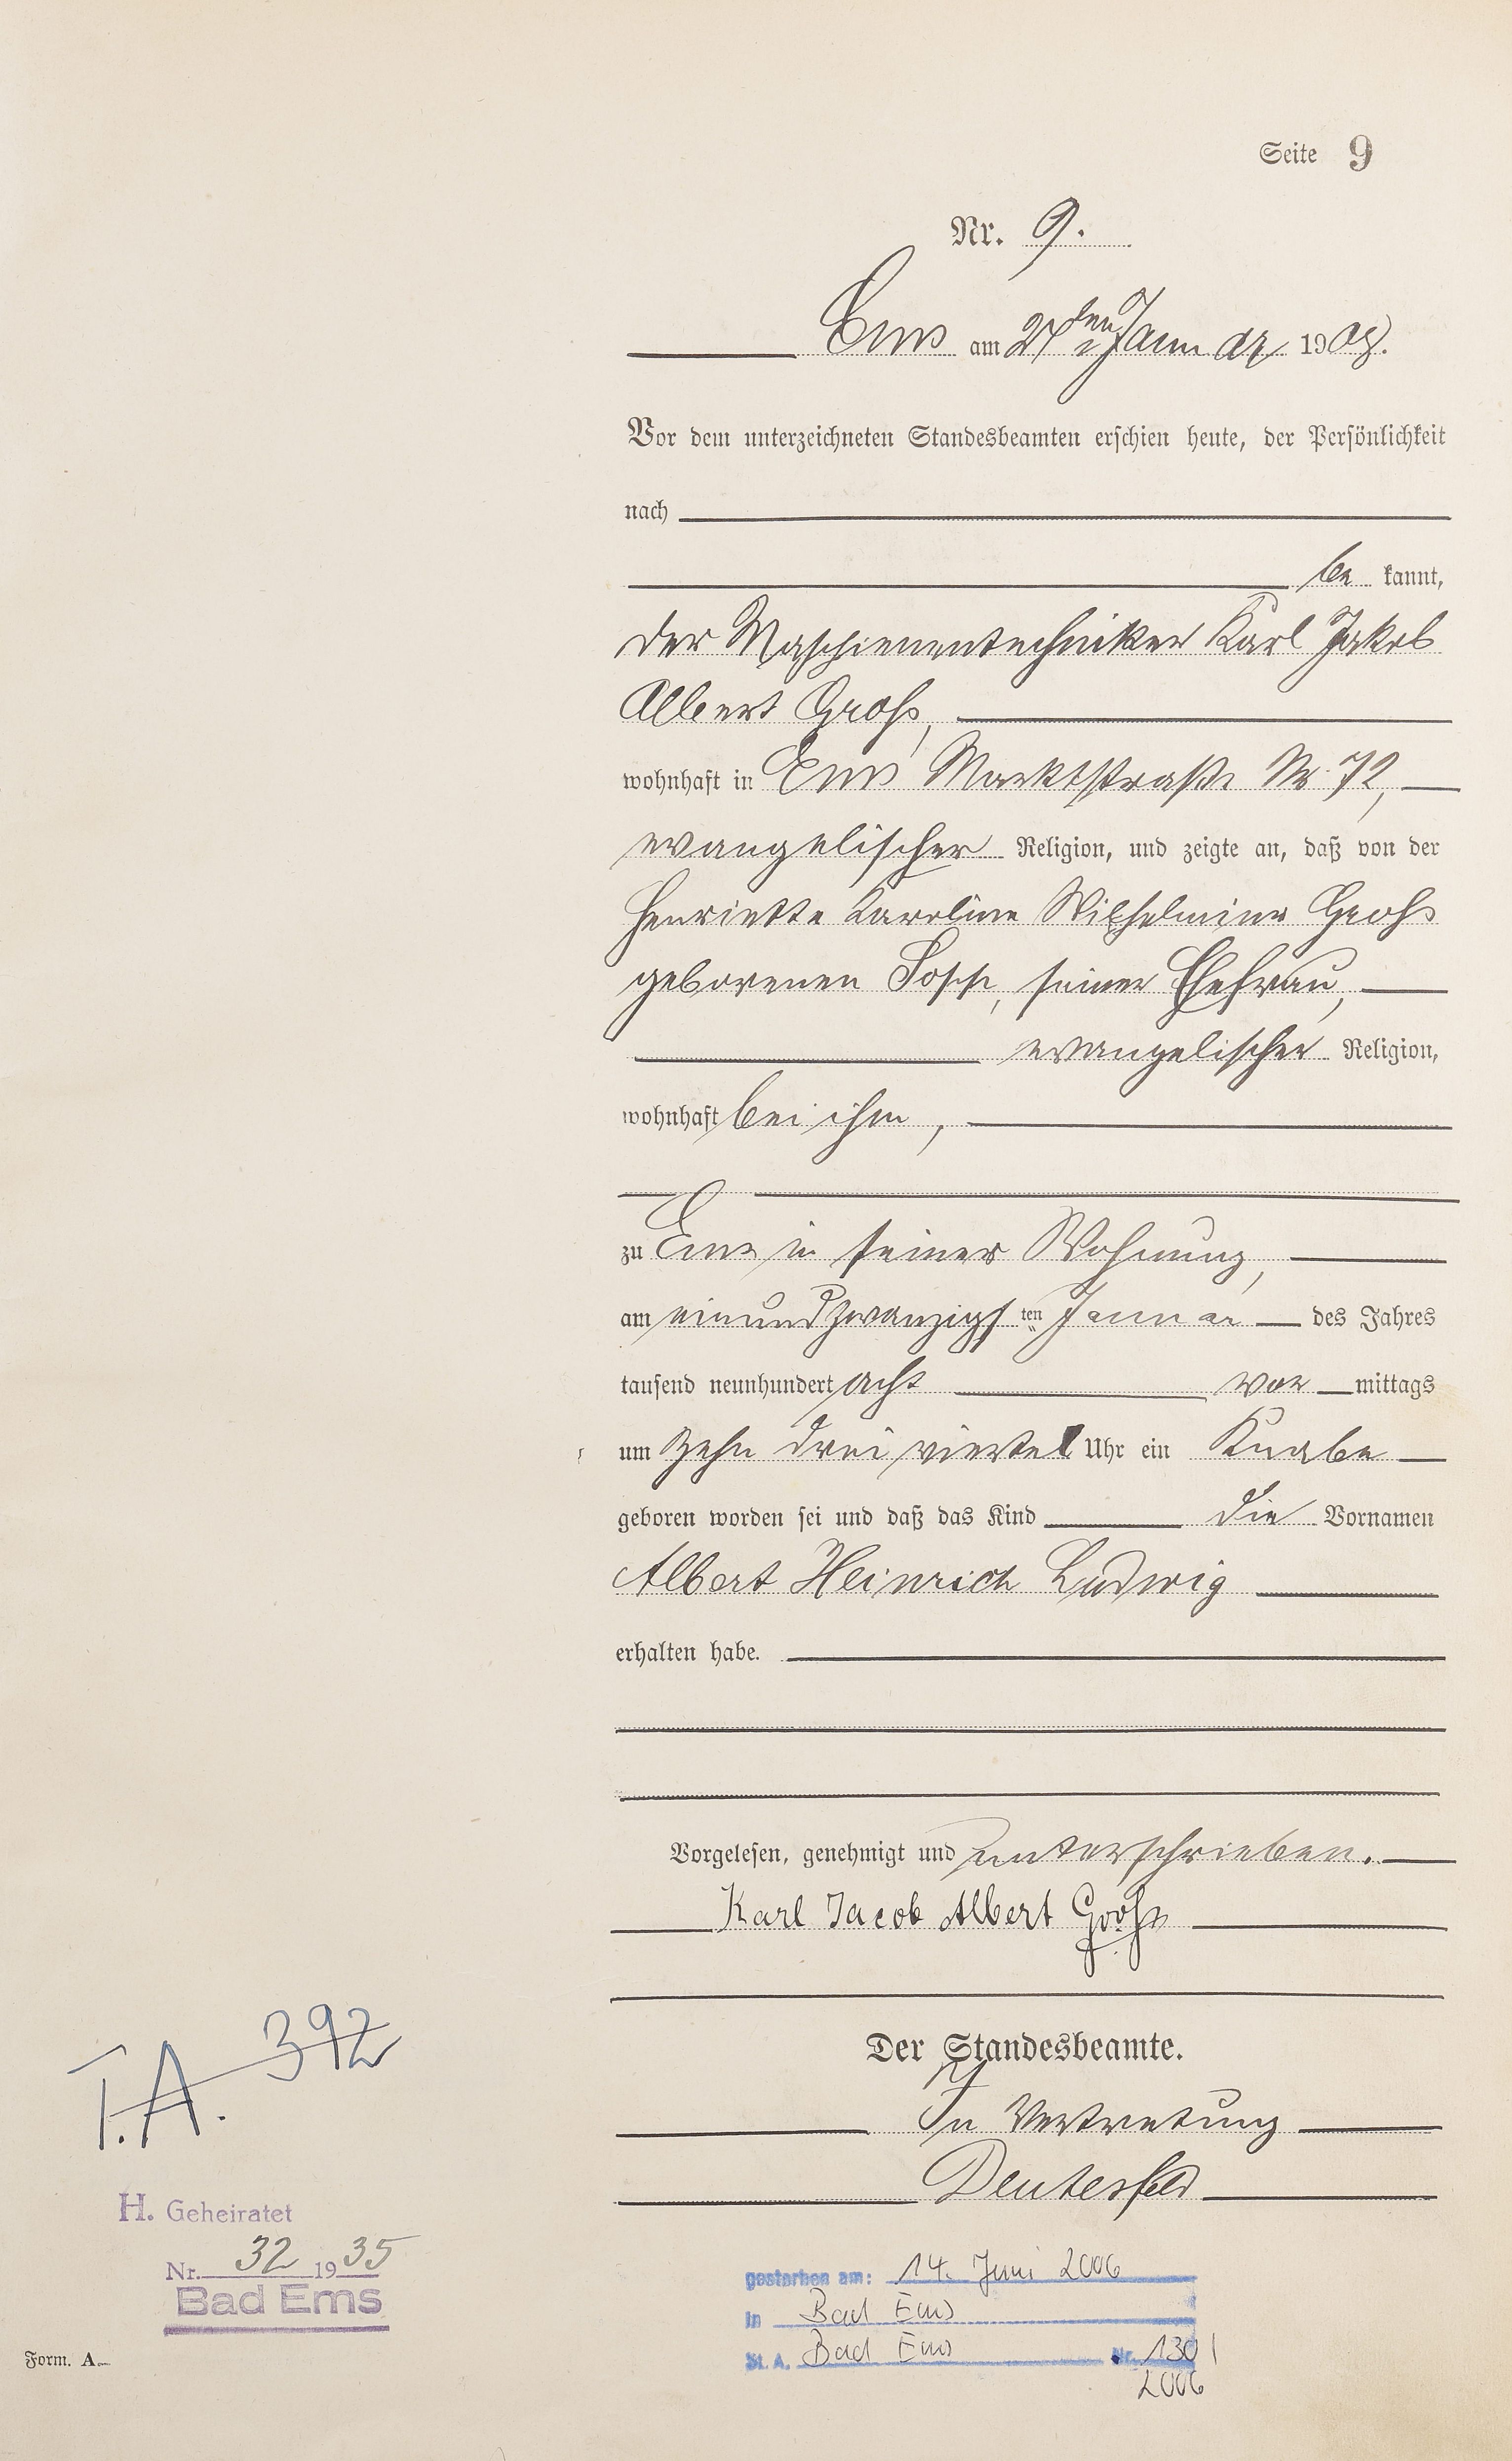 Seite 9
Nr. 9.
Ems am 27ten Januar 1908.
Vor dem unterzeichneten Standesbeamten erschien heute, der Persönlichkeit
nach
be kannt,
der Maschienentechniker Karl Jakob
Albert Groß,
wohnhaft in Ems Marktstraße Nr 72,
evangelischer Religion, und zeigte an, daß von der
Henriette Karoline Wilhelmine Groß
geborenen seiner Ehefrau,
evangelischer Religion,
wohnhaft bei ihm,
zu Ems in seiner Wohnung,
am einundzwanzigsten Januar des Jahres
tausend neunhundert acht vor mittags
um zehn drei viertel Uhr ein Knabe
geboren worden sei und daß das Kind die Vornamen
Albert Heinrich Ludwig
erhalten habe.
Vorgelesen, genehmigt und unterschrieben.
Karl Jacob Albert Groß
Der Standesbeamte.
In Vertretung
Deutesfeld
T.A. 392
H. Geheiratet
Nr. 32 1935
Bad Ems
gestorben am: 14. Juni 2006
in Bad Ems
St. A. Bad Ems Nr. 130/
2006
Form. A.